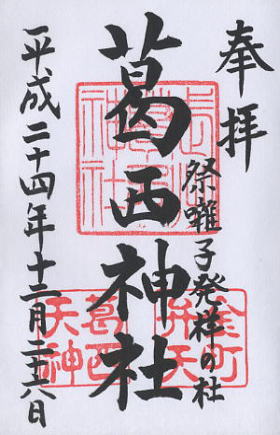 奉拝
祭囃子発祥の杜
葛西神社
平成二十四年十二月二十六日
葛西神社
金町
弁天
葛西
天神